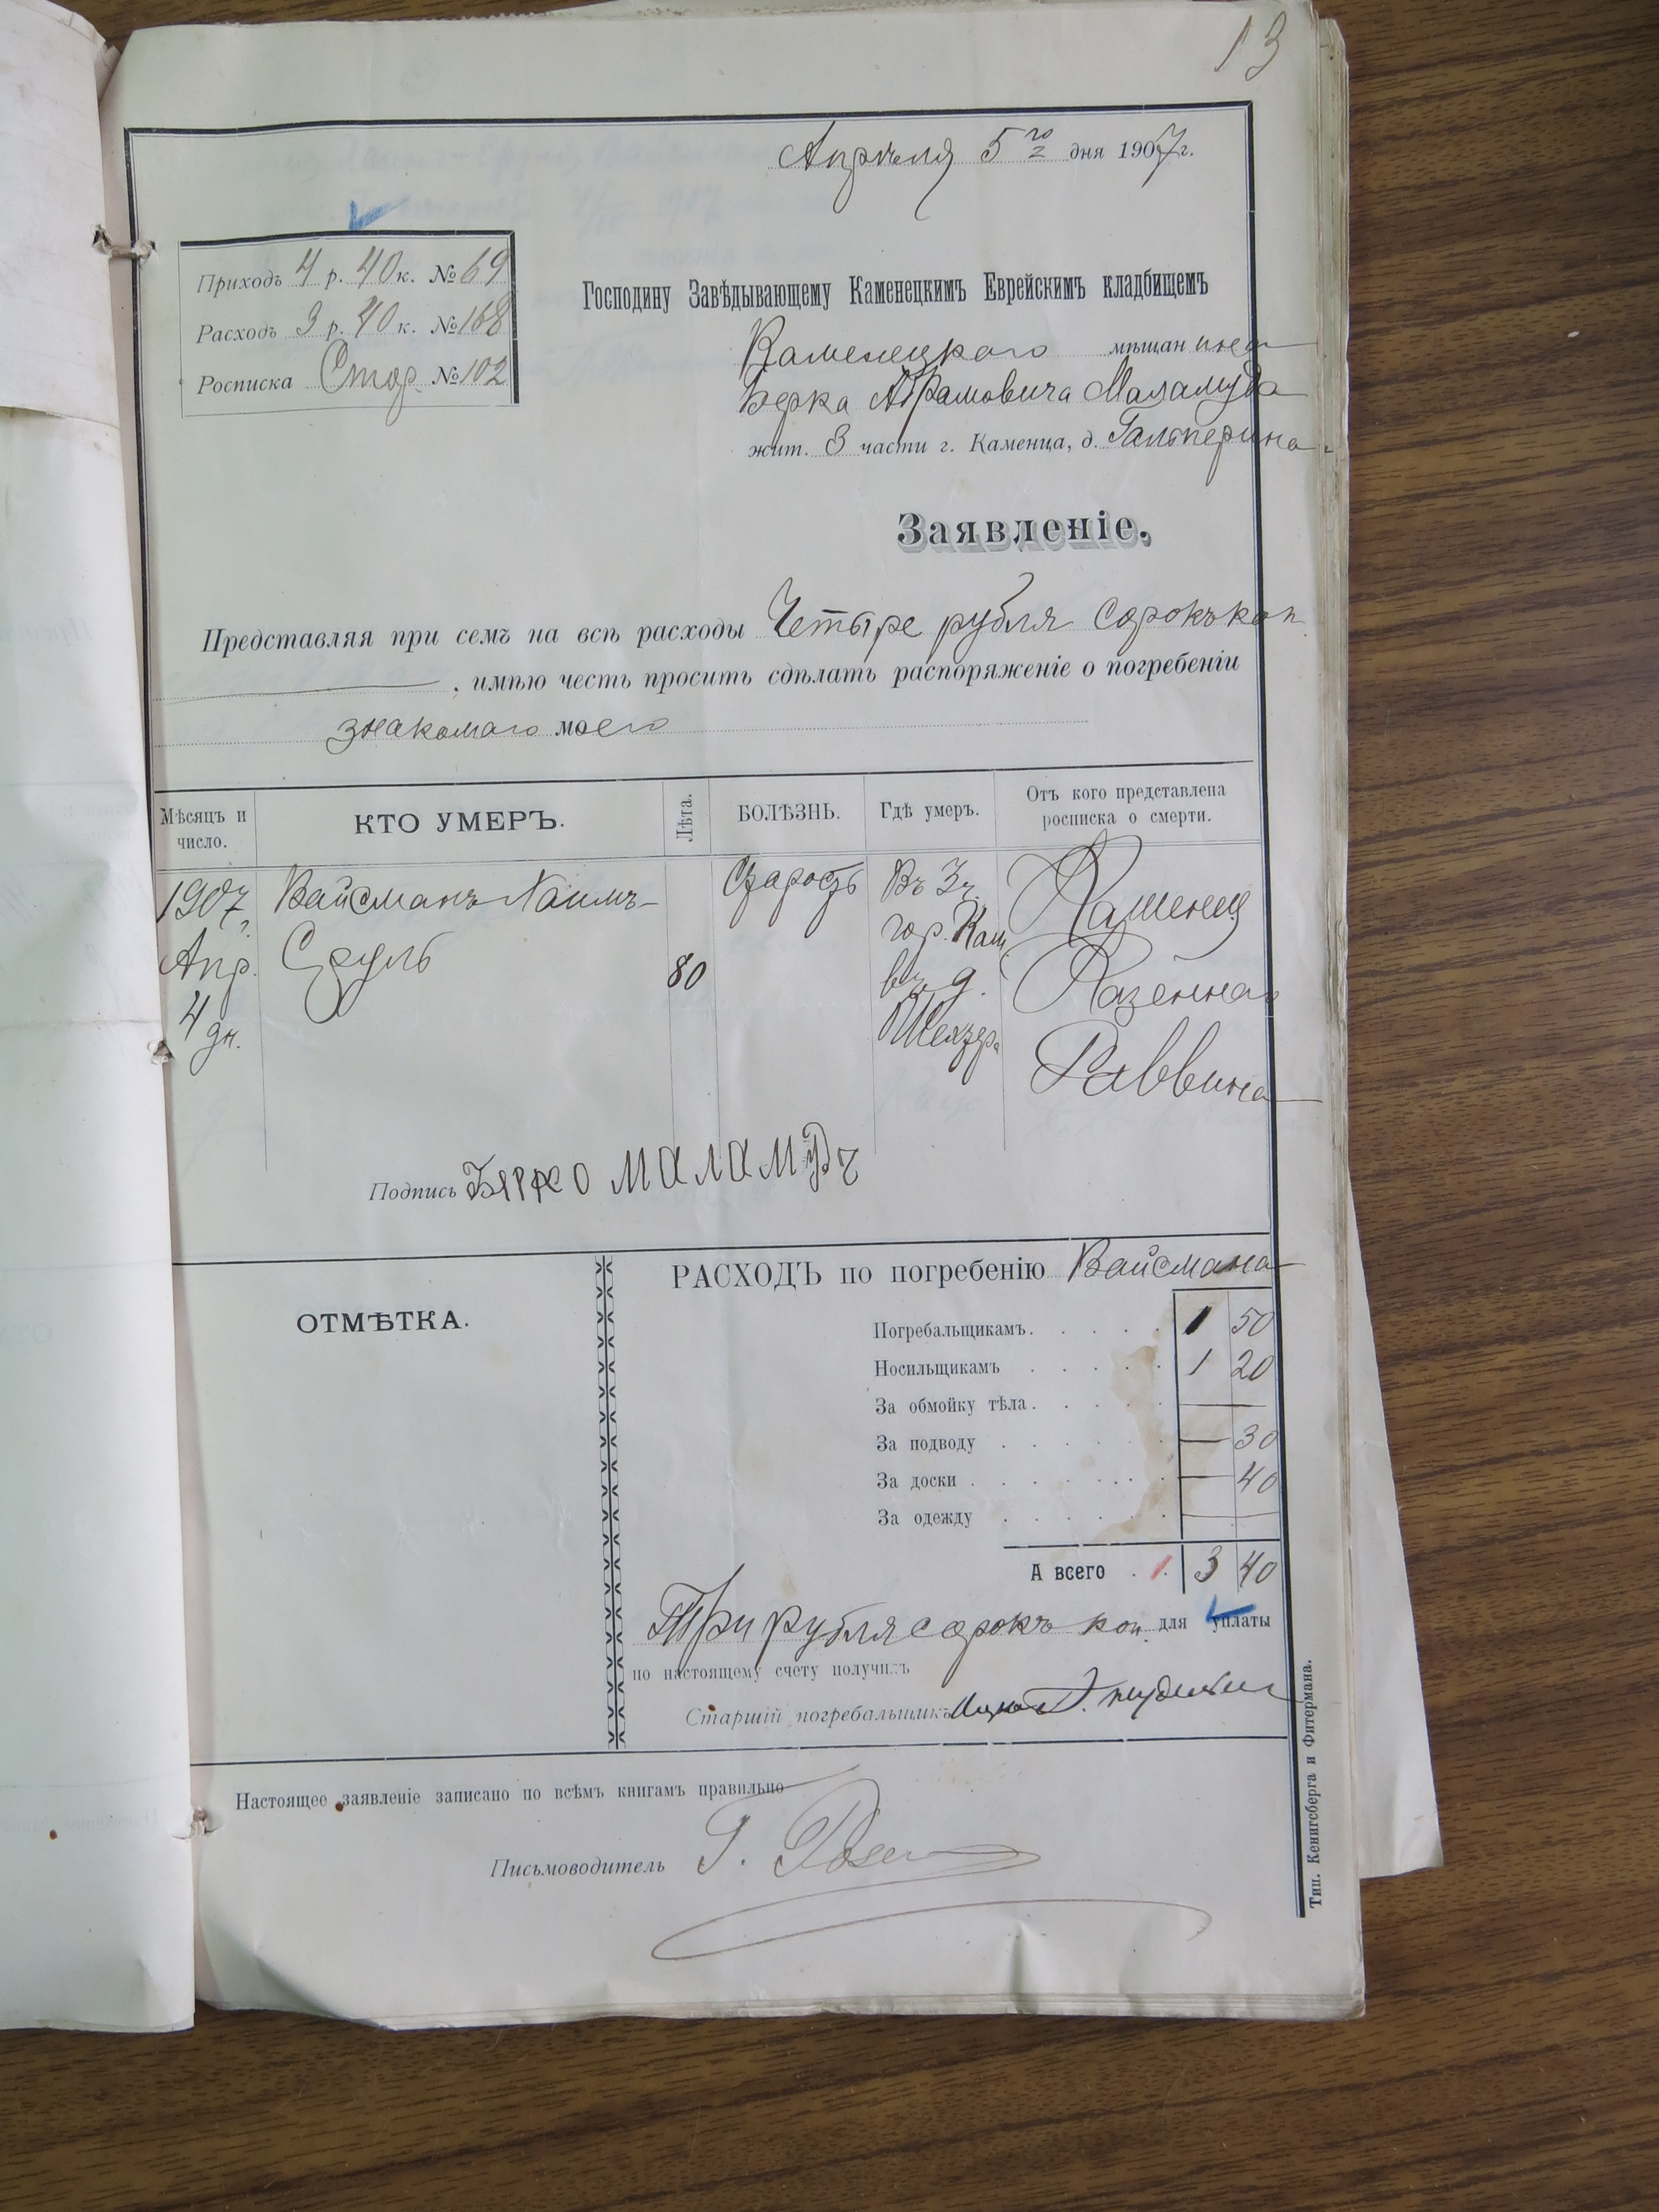 13
Апрѣля 5го дня 1907 г.
Приходъ 4 р. 40 к. № 69
Расходъ 3 р. 40 к. № 168
Росписка Стор. № 102
Господину Завѣдывающему Каменецкимъ Еврейскимъ кладбищемъ
Каменецкаго мѣщанина
Берка Абрамовича Маламуда
жит. 3 части г. Каменца, д. Гальперина.
Заявленіе.
Представляя при семъ на всѣ расходы Четыре рубля сорокъ коп.
, имѣю честь просить сдѣлать распоряженіе о погребеніи
знакомаго моего
Мѣсяцъ и число.
КТО УМЕРЪ.
Лѣта.
БОЛѢЗНЬ.
Гдѣ умеръ.
Отъ кого представлена росписка о смерти.
1907 Вайсманъ Хаимъ- Старость Въ 3 ч. Каменец
г. Апр. Сруль 80 гор. Кам. Казеннаго
4 дн. въ д. Раввина
Подпись Бярко маламудъ
ОТМѢТКА.
РАСХОДЪ по погребенію Вайсмана
Погребальщикамъ. 1 50
Носильщикамъ 1 20
За обмойку тѣла. —
За подводу — 30
За доски — 40
За одежду —
А всего 3 40
Три рубля сорокъ коп. для уплаты
по настоящему счету получилъ
Старшій погребальщикъ
Настоящее заявленіе записано по всѣмъ книгамъ правильно
Письмоводитель
Тип. Кенигсберга и Фитермана.